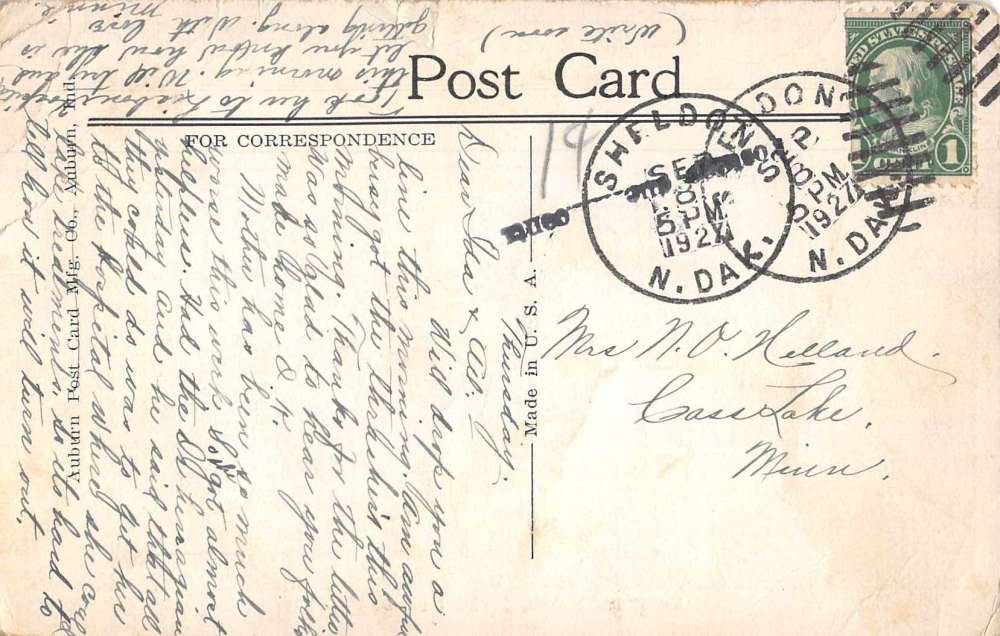 Post Card
FOR CORRESPONDENCE
Auburn Post Card Mfg. Co., Auburn, Ind.
Made in U. S. A.
SHELDON
SEP
8
5 PM
1927
N. DAK.
SHELDON
SEP
8
5 PM
1927
N. DAK.
UNITED STATES POSTAGE
FRANKLIN
1 CENT 1
14
Mrs N. O. Helland.
Cass Lake,
Minn.
Thursday.
Dear &
Will drop you a
line this morning. Am awful
busy got the threshers this
morning. Thanks for the letter
was so glad to hear you folks
made home O. K.
Mother has been so much
worse this week so got almost
helpless. Had the
yesterday and he said that all
they could do was to get her
to the hospital where she could
get treatment, so its hard to
tell how it will turn out.
Took her to Lisbon
this morning. Will try and
let you know how she is
getting along. With love
Minnie.
(Write soon)